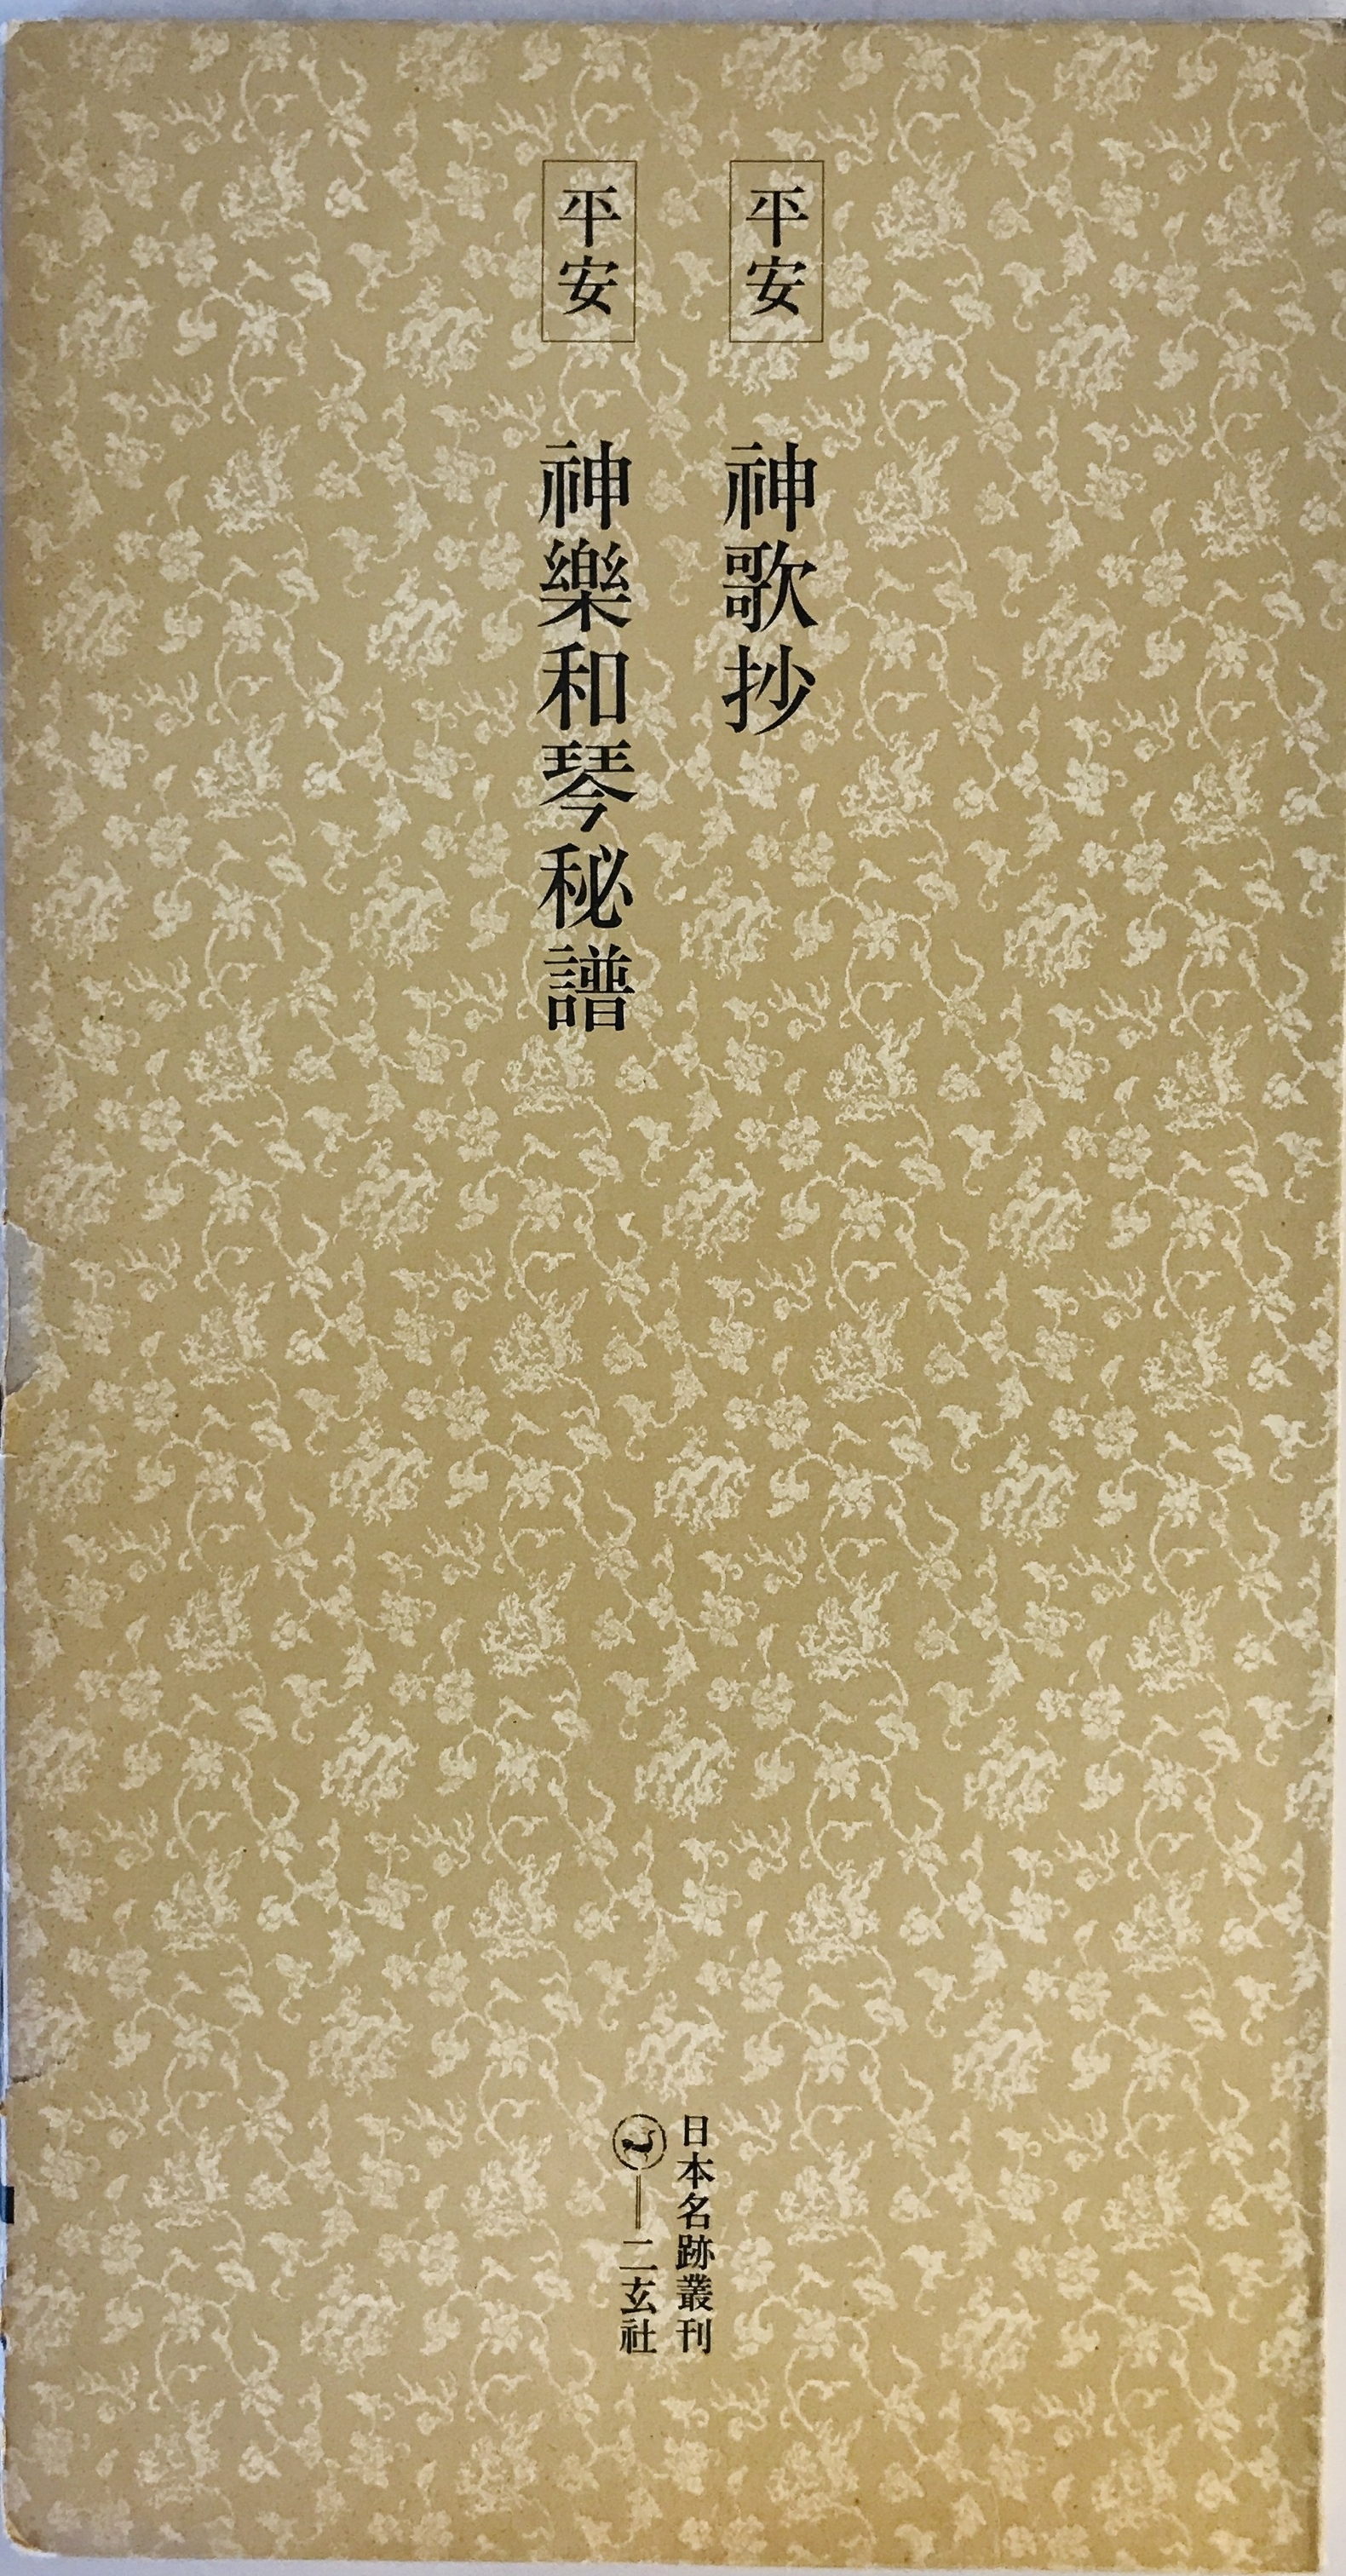 平安 神歌抄
平安 神樂和琴秘譜
日本名跡叢刊
二玄社